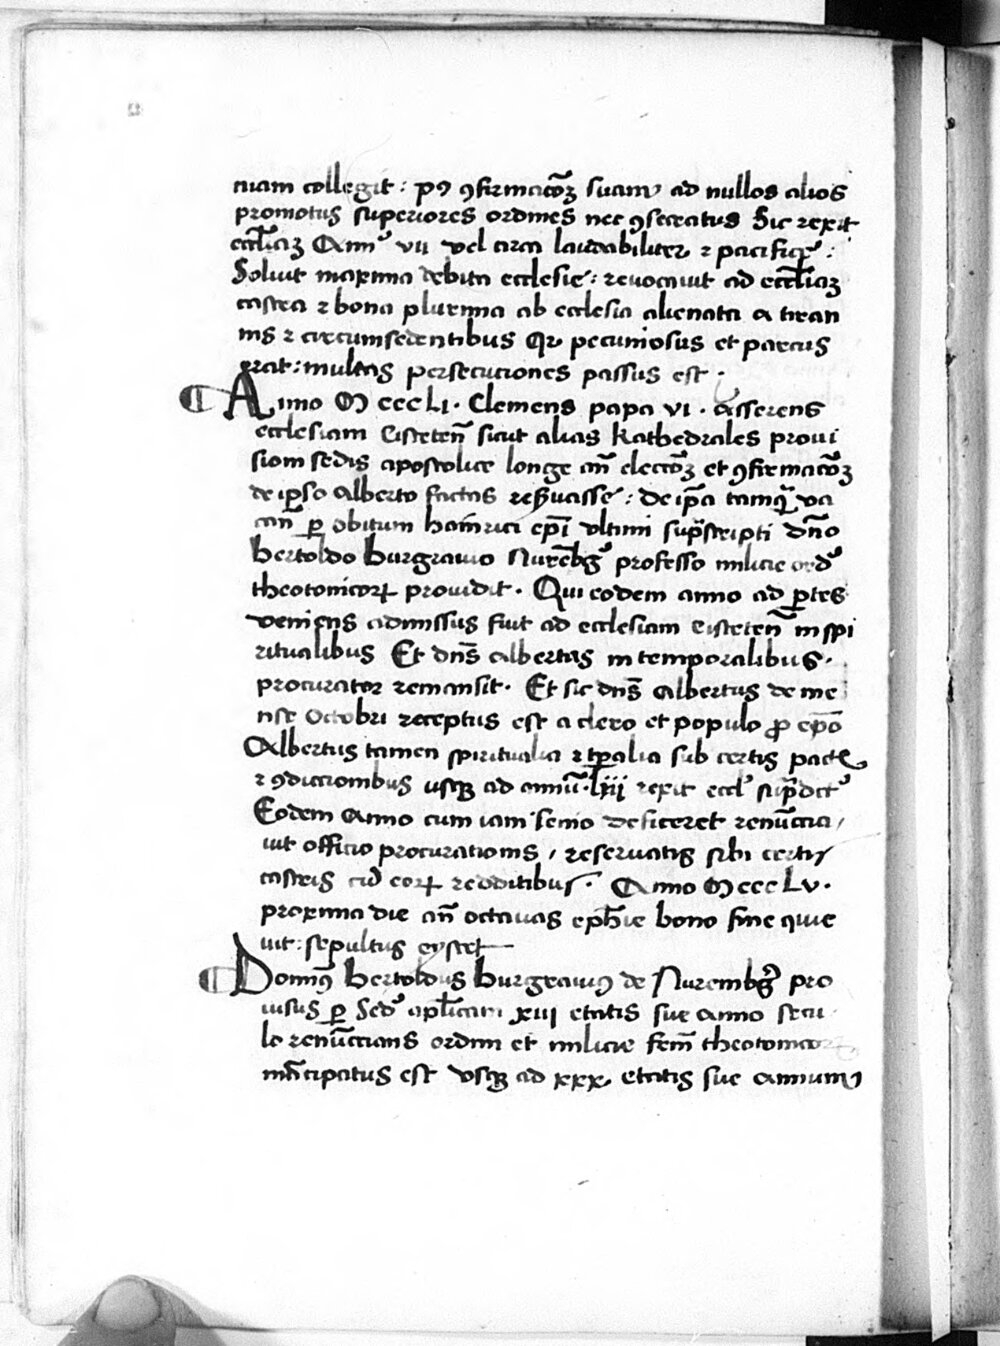 niam collegit : p⁹ ꝯfirmac̄oꝫ suam ad nullos alios
promotus superiores ordines nec ꝯsecratus Sic rexit
eccl̄iaꝫ Ann̄ vii vel circa laudabiliter ⁊ pacifice :
Soluit maxima debita ecclesie : reuocauit ad eccl̄iaꝫ
castra ⁊ bona plurima ab ecclesia alienata a tiran
nis ⁊ circumsedentibus Qr pecuniosus et parcus
erat : multas persecuciones passus est .
Anno M cccLi . Clemens papa vi . asserens
ecclesiam Eisteten̄ sicut alias kathedrales proui
siom sedis apostolice longe an̄ elecc̄oꝫ et ꝯfirmac̄oꝫ
de ipso Alberto factas reẜuasse : de ip̄a tamqͣ va
can̄ ꝑ obitum hainrici ep̄i vltimi sup̄scripti dn̄o
bertoldo burgrauio Nuremb̄g professo milicie ord
theotonicorꝝ prouidit . Qui eodem anno ad ꝑtes
veniens admissus fuit ad ecclesiam eisteten̄ in spi
ritualibus Et dn̄s albertus in temporalibus .
procurator remansit . Et sic dn̄s Albertus de me
nse Octobri receptus est a clero et populo ꝓ ep̄o
Albertus tamen spiritualia ⁊ tp̄alia sub certis pactis
⁊ ꝯdiccionibus usqꝫ ad annū . lxii rexit eccl̄ sup̄dict
Eodem Anno cum iam senio deficeret renūccia/
uit officio procurationis / reseruatis sibi certis
castris cū eorꝝ redditibus . Anno M cccLv .
proxima die an̄ octauas eph̄ie bono fine quie
uit : sepultus eystet
Domin⁹ bertoldus burgrauiꝰ de Nuremb̄g pro
uisus ꝑ Sed apl̄icam xiii etatis sue anno secu
lo renūccians ordini et milicie frm̄ theotonicor
mācipatus est vsqꝫ ad xxx etatis sue annum